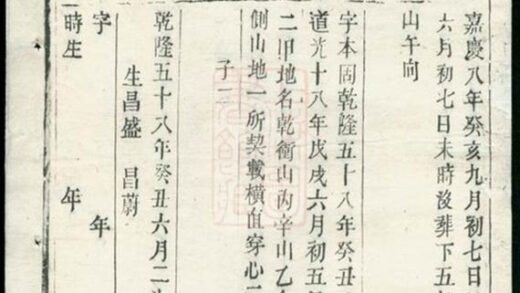 嘉慶八年癸亥九月初七日
六月初七日未時沒葬下五
山午向
字本固乾隆五十八年癸丑
道光十八年戊戌六月初五
二甲地名乾衡山內辛山乙
側山地一所契載橫直穿心
子
乾隆五十八年癸丑六月二
生昌盛 昌蔚
字 年
時生 年